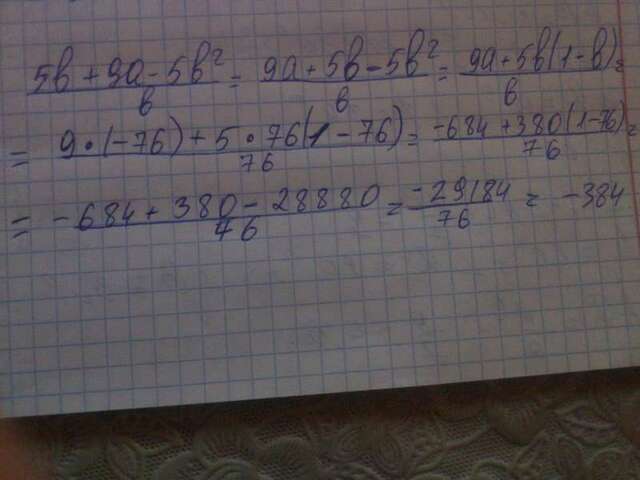 (5b + 9a - 5b²)/b = (9a + 5b - 5b²)/b = (9a + 5b(1 - b))/b =
= (9·(-76) + 5·76(1 - 76))/76 = (-684 + 380(1 - 76))/76 =
= (-684 + 380 - 28880)/76 = (-29184)/76 = -384